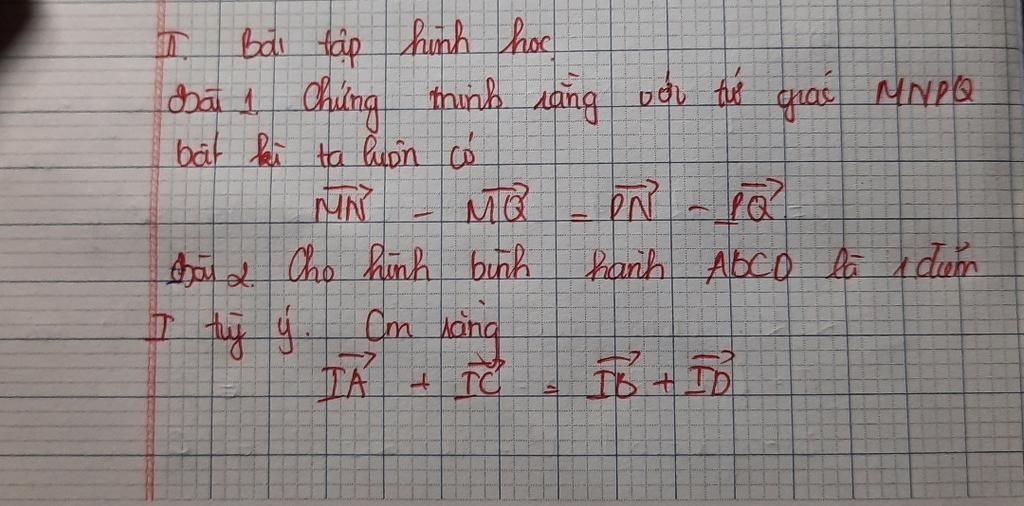 II. Bài tập hình học
Bài 1 Chứng minh rằng với tứ giác MNPQ
bất kì ta luôn có
MN→ - MQ→ = PN→ - PQ→
Bài 2. Cho hình bình hành ABCD là 1 điểm
I tuỳ ý. Cm rằng
IA→ + IC→ = IB→ + ID→